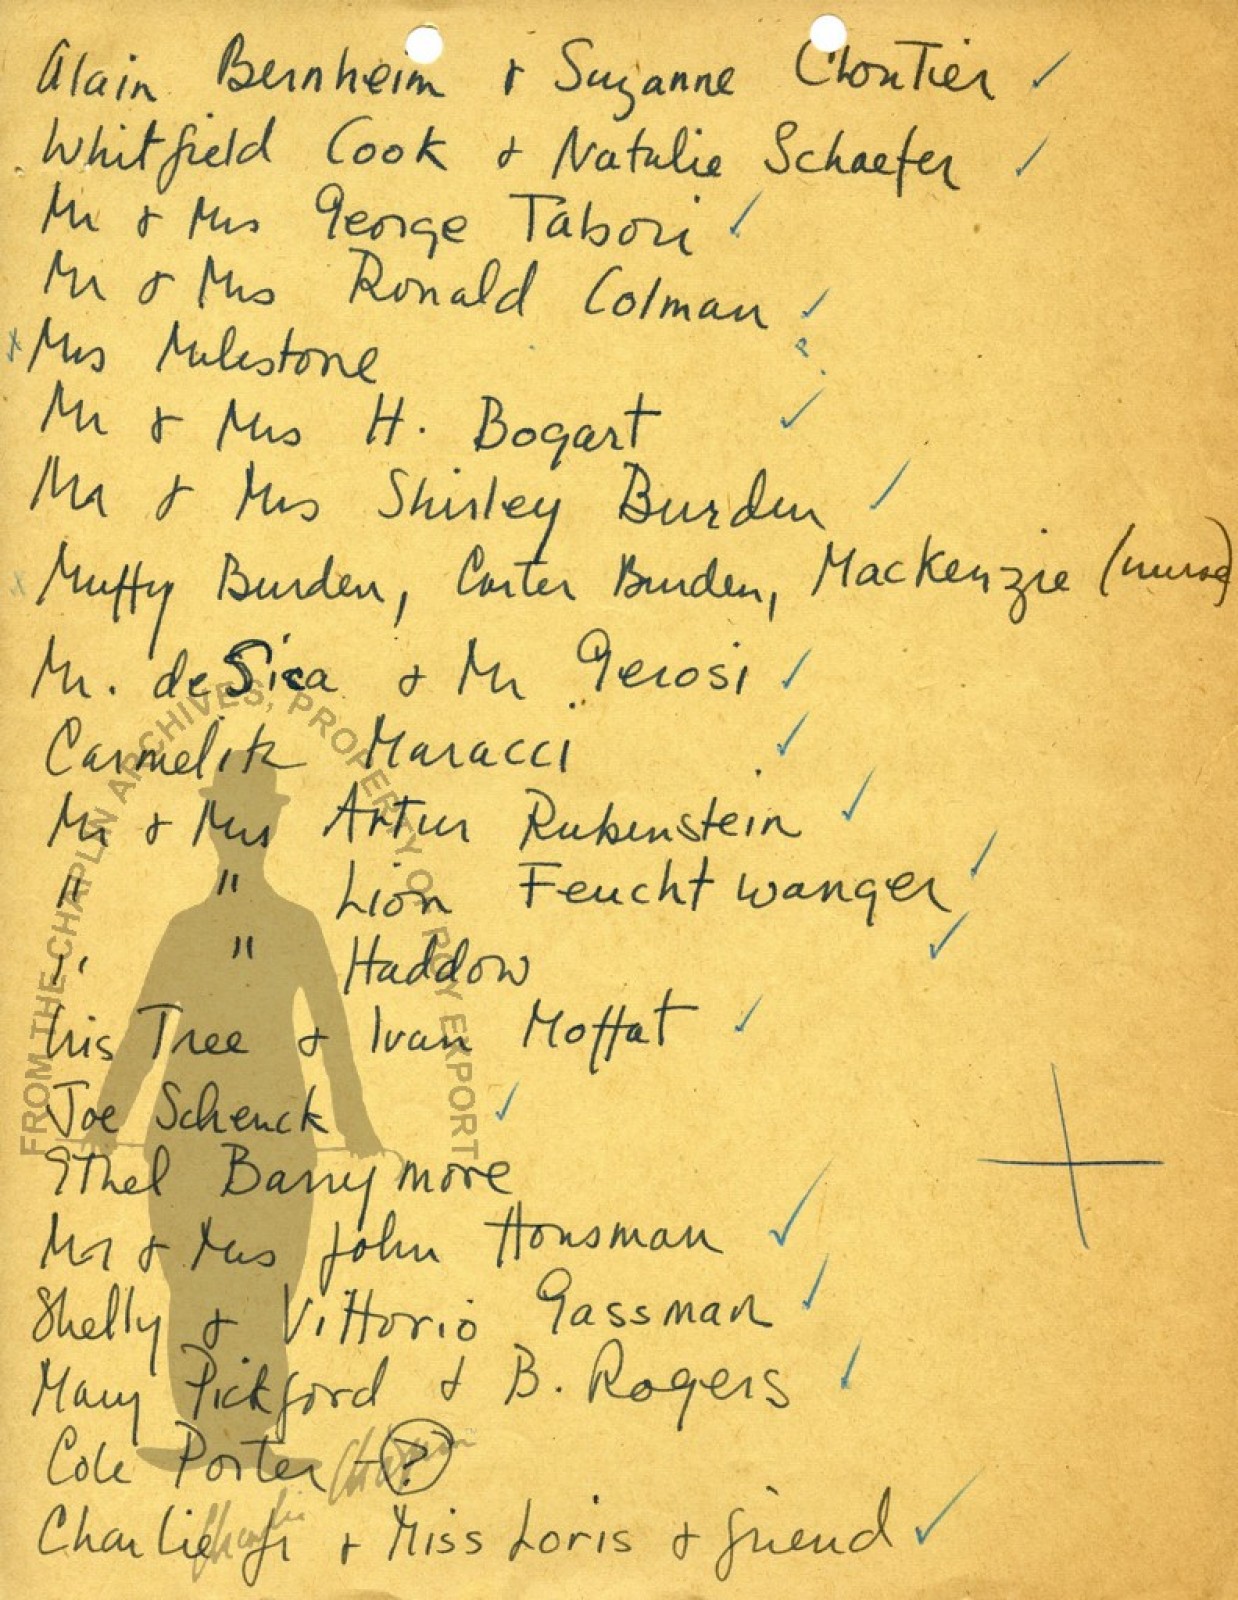 Alain Bernheim & Suzanne Cloutier ✓
Whitfield Cook & Natalie Schaefer ✓
Mr & Mrs George Tabori ✓
Mr & Mrs Ronald Colman ✓
x Mrs Milestone ?
Mr & Mrs H. Bogart ✓
Mr & Mrs Shirley Burden ✓
x Muffy Burden, Carter Burden, Mackenzie (nurse)
Mr. de Sica & Mr Gerosi ✓
Carmelita Maracci ✓
Mr & Mrs Artur Rubenstein ✓
" " Lion Feuchtwanger ✓
" " Haddow ✓
Iris Tree & Ivan Moffat ✓
Joe Schenck ✓
Ethel Barrymore
Mr & Mrs John Housman ✓
Shelly & Vittorio Gassman ✓
Mary Pickford & B. Rogers ✓
Cole Porter - ?
Charlie Jr & Miss Loris & friend ✓
FROM THE CHAPLIN ARCHIVES, PROPERTY OF ROY EXPORT